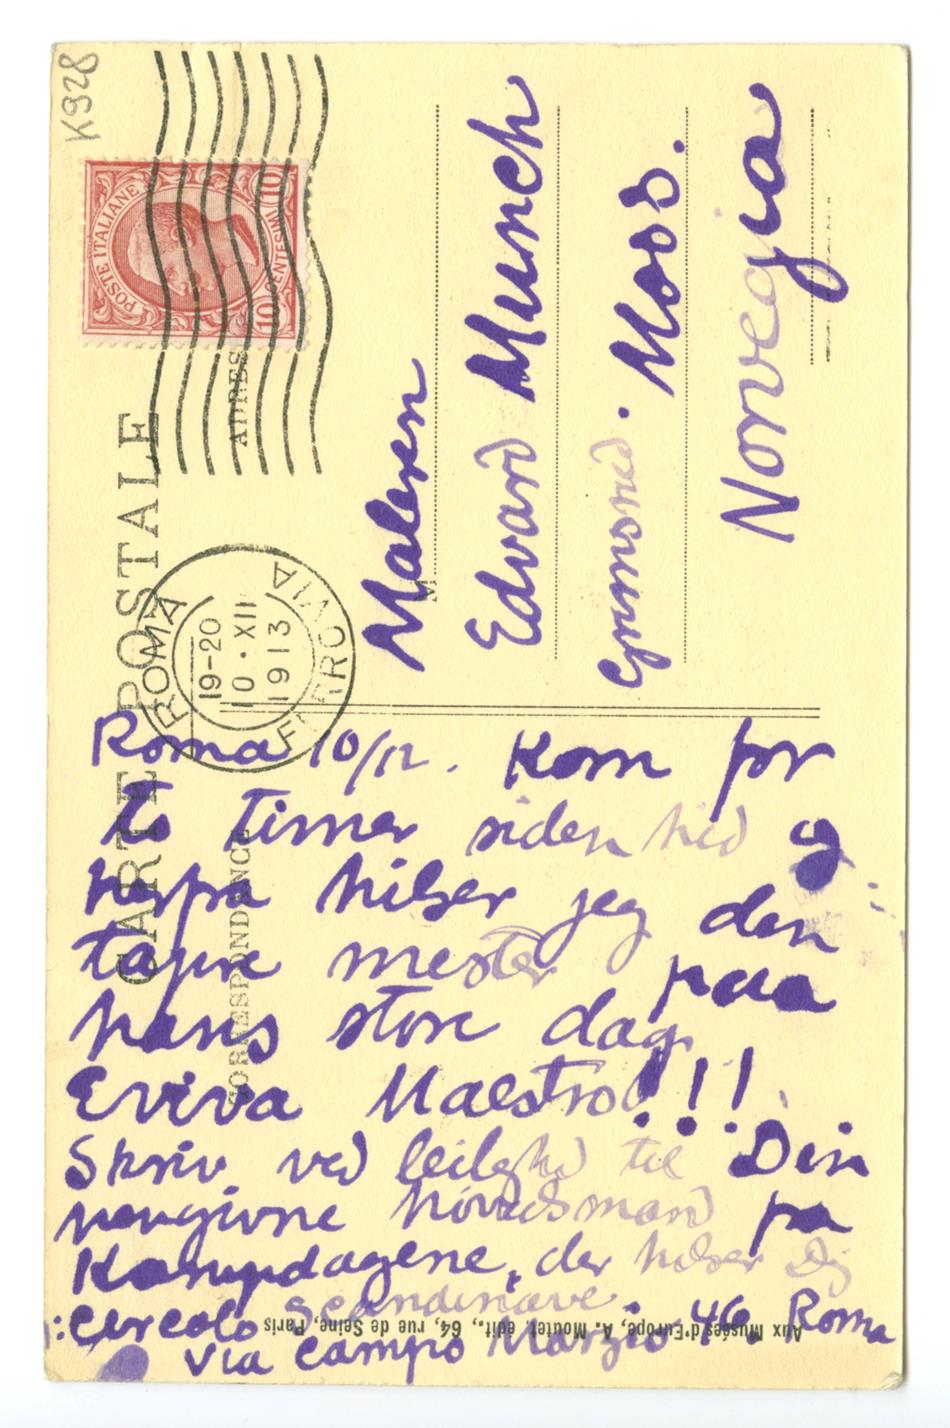 K928
POSTE ITALIANE
10 CENTESIMI 10
CARTE POSTALE
CORRESPONDANCE
ADRES
ROMA
19-20
10 · XII
1913
FERROVIA
M
Maleren
Edvard Munch
Grimsrød . Moss.
Norvegia
Roma 10/12. Kom for
to timer siden hid og
herfra hilser jeg den
tapre mester paa
hans store dag.
Eviva Maestro!!!
Skriv ved leilighd til Din
hengivne høvidsmand pa
Kampdagene, der hilser Dig
:Circolo Scandinave.
via Campo Marzio 46. Roma
Aux Musées d'Europe, A. Moutet, édit., 64, rue de Seine, Paris